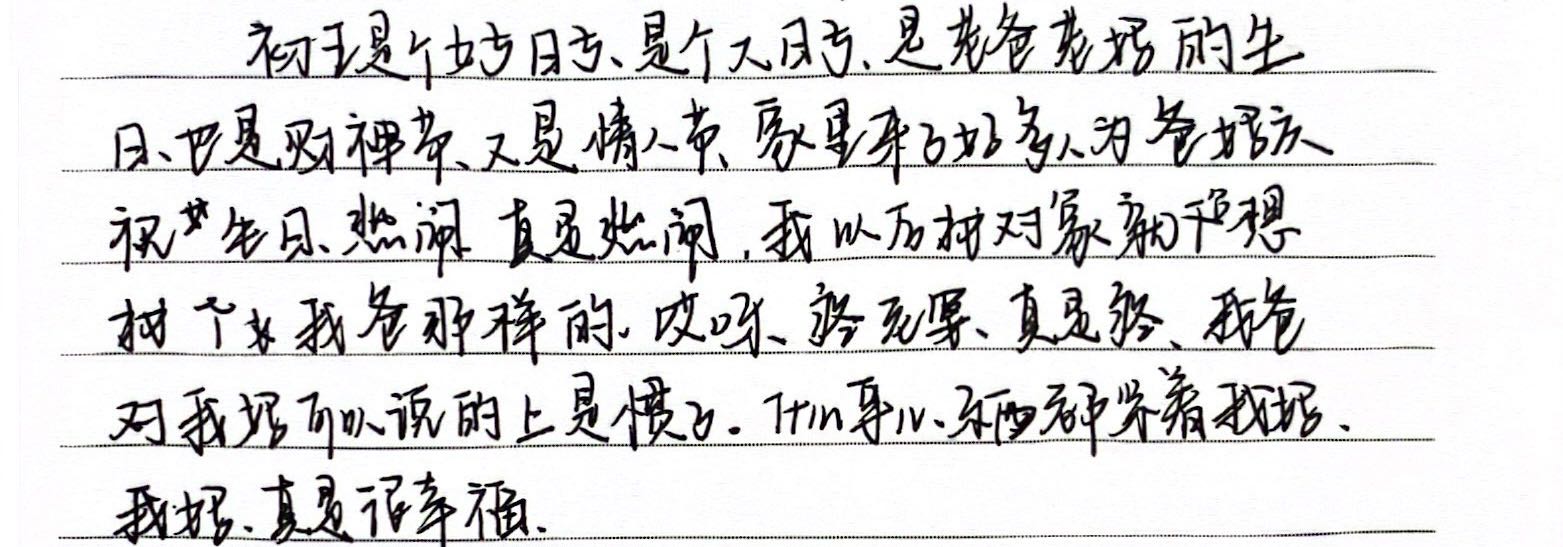 初五是个好日子、是个大日子、是老爸老妈的生
日、也是财神节、又是情人节、家里来了好多人为爸妈庆
祝生日、热闹 真是热闹,我以后找对家就想
找个我爸那样的、哎呀、完美、真是、我爸
对我妈可以说的上是惯了. 什么事儿、东西都紧着我妈、
我妈、真是很幸福、